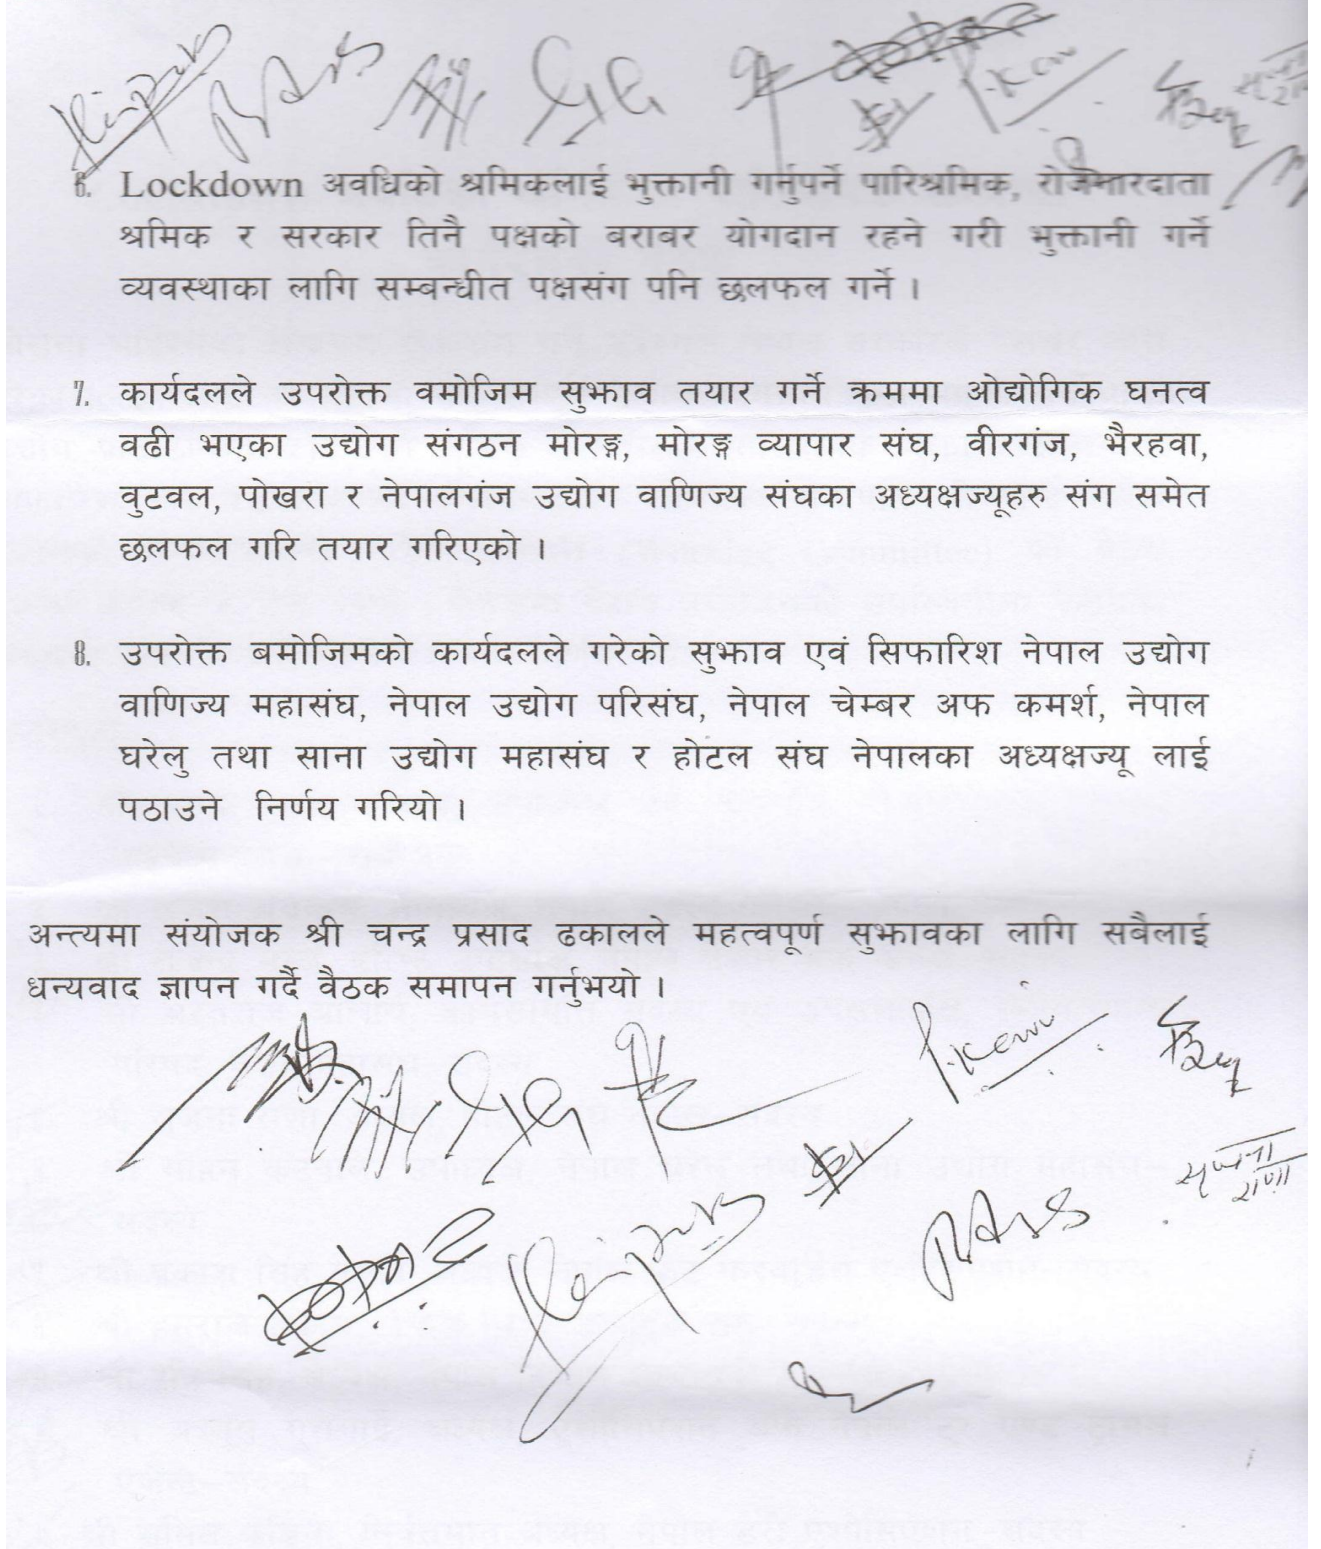 6. Lockdown अवधिको श्रमिकलाई भुक्तानी गर्नुपर्ने पारिश्रमिक, रोजगारदाता
श्रमिक र सरकार तिनै पक्षको बराबर योगदान रहने गरी भुक्तानी गर्ने
व्यवस्थाका लागि सम्बन्धीत पक्षसंग पनि छलफल गर्ने ।
7. कार्यदलले उपरोक्त वमोजिम सुझाव तयार गर्ने क्रममा ओद्योगिक घनत्व
वढी भएका उद्योग संगठन मोरङ्ग, मोरङ्ग व्यापार संघ, वीरगंज, भैरहवा,
वुटवल, पोखरा र नेपालगंज उद्योग वाणिज्य संघका अध्यक्षज्यूहरु संग समेत
छलफल गरि तयार गरिएको ।
8. उपरोक्त बमोजिमको कार्यदलले गरेको सुझाव एवं सिफारिश नेपाल उद्योग
वाणिज्य महासंघ, नेपाल उद्योग परिसंघ, नेपाल चेम्बर अफ कमर्श, नेपाल
घरेलु तथा साना उद्योग महासंघ र होटल संघ नेपालका अध्यक्षज्यू लाई
पठाउने निर्णय गरियो ।
अन्त्यमा संयोजक श्री चन्द्र प्रसाद ढकालले महत्वपूर्ण सुझावका लागि सबैलाई
धन्यवाद ज्ञापन गर्दै वैठक समापन गर्नुभयो ।